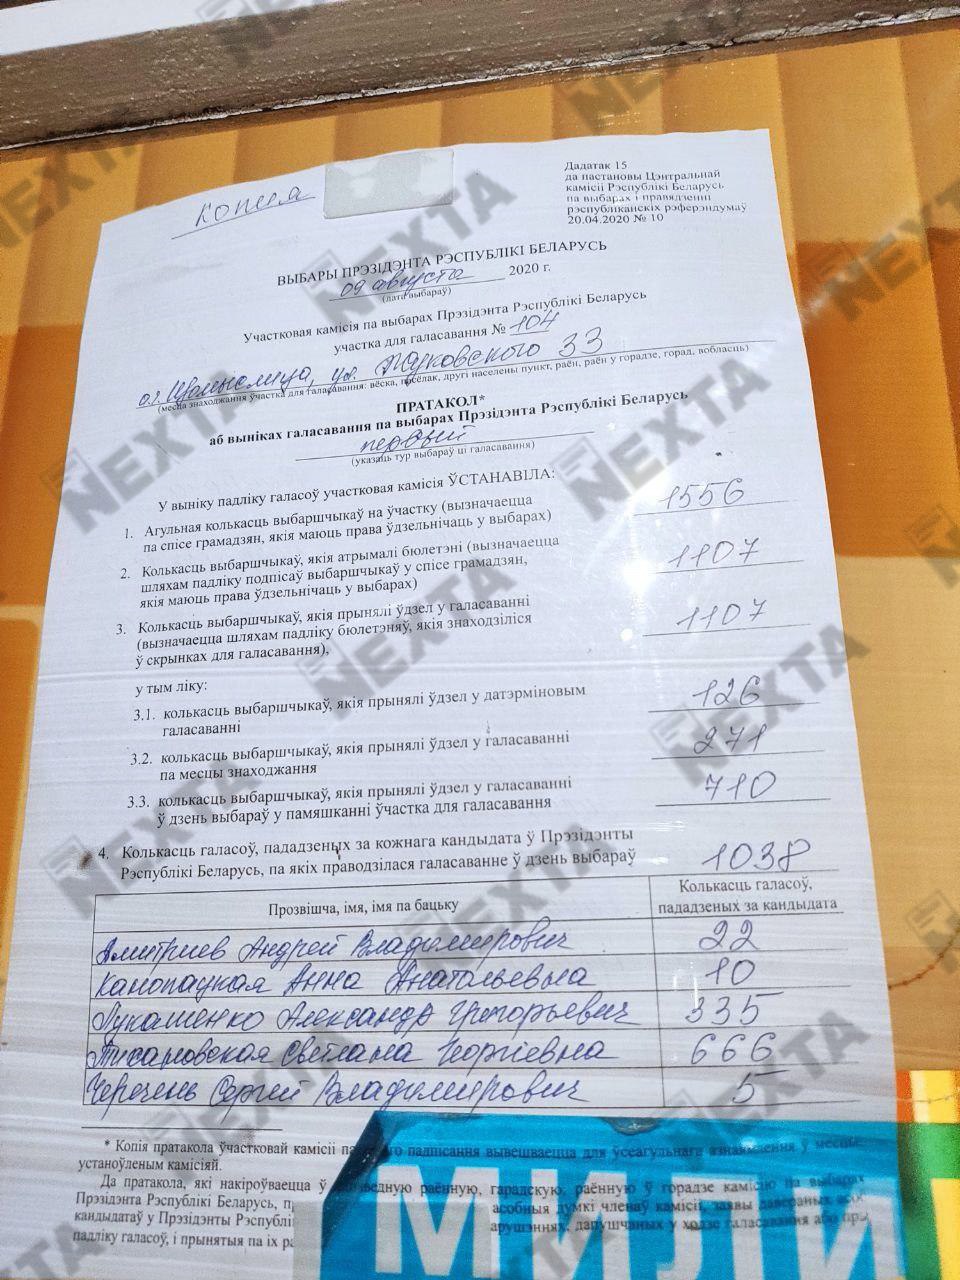 Копия
Дадатак 15
да пастановы Цэнтральнай
камісіі Рэспублікі Беларусь
па выбарах і правядзенні
рэспубліканскіх рэферэндумаў
20.04.2020 № 10
ВЫБАРЫ ПРЭЗІДЭНТА РЭСПУБЛІКІ БЕЛАРУСЬ
09 августа 2020 г.
(дата выбараў)
Участковая камісія па выбарах Прэзідэнта Рэспублікі Беларусь
участка для галасавання № 104
а.г. Щомыслица, ул. Жуковского 33
(месца знаходжання ўчастка для галасавання: вёска, пасёлак, другі населены пункт, раён, раён у горадзе, горад, вобласць)
ПРАТАКОЛ*
аб выніках галасавання па выбарах Прэзідэнта Рэспублікі Беларусь
первый
(указаць тур выбараў ці галасавання)
У выніку падліку галасоў участковая камісія ЎСТАНАВІЛА:
1. Агульная колькасць выбаршчыкаў на ўчастку (вызначаецца 1556
па спісе грамадзян, якія маюць права ўдзельнічаць у выбарах)
2. Колькасць выбаршчыкаў, якія атрымалі бюлетэні (вызначаецца 1107
шляхам падліку подпісаў выбаршчыкаў у спісе грамадзян,
якія маюць права ўдзельнічаць у выбарах)
3. Колькасць выбаршчыкаў, якія прынялі ўдзел у галасаванні 1107
(вызначаецца шляхам падліку бюлетэняў, якія знаходзіліся
ў скрынках для галасавання),
у тым ліку:
3.1. колькасць выбаршчыкаў, якія прынялі ўдзел у датэрміновым 126
галасаванні
3.2. колькасць выбаршчыкаў, якія прынялі ўдзел у галасаванні 271
па месцы знаходжання
3.3. колькасць выбаршчыкаў, якія прынялі ўдзел у галасаванні 710
ў дзень выбараў у памяшканні ўчастка для галасавання
4. Колькасць галасоў, пададзеных за кожнага кандыдата ў Прэзідэнты
Рэспублікі Беларусь, па якіх праводзілася галасаванне ў дзень выбараў 1038
Прозвішча, імя, імя па бацьку Колькасць галасоў,
пададзеных за кандыдата
Дмитриев Андрей Владимирович 22
Канопацкая Анна Анатольевна 10
Лукашенко Александр Григорьевич 335
Тихановская Светлана Георгиевна 666
Черечень Сергей Владимирович 5
* Копія пратакола ўчастковай камісіі па падпісання вывешваецца для ўсеагульнага азнаямлення ў месцы,
устаноўленым камісіяй.
Да пратакола, які накіроўваецца ў раённую, гарадскую, раённую ў горадзе камісію па выбарах
Прэзідэнта Рэспублікі Беларусь, асобныя думкі членаў камісіі, заявы давераных асоб
кандыдатаў у Прэзідэнты Рэспублікі дапушчаных у ходзе галасавання або пры
падліку галасоў, і прынятыя па іх
МИЛИ
NEXTA